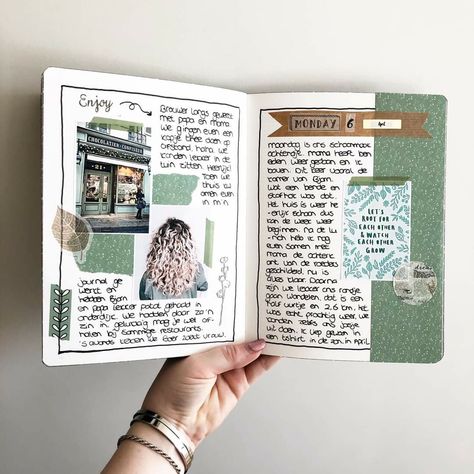 Enjoy
Brouwer langs geweest
met papa en mama.
we gingen even een
kopje thee doen op
afstand. haha. we
konden lekker in de
tuin zitten, heerlijk!
Toen we
thuis
even
in m'n
CHOCOLATIER-CONFISEUR
21
Journal ge
werkt en
hebben Bjorn
en papa lekker patat gehaald in
onderdijk. We hadden daar zo'n
zin in. gelukkig mag je wel af-
halen bij sommige restaurants.
's avonds keken we Boer zoekt Vrouw.
MONDAY 6
April
maandag is ons schoonmaak
achtertje. mama heeft ben
eden weer gedaan en ik
boven. Dit keer vooral de
kamer van Bjorn.
Wat een bende en
stof hok was dat.
Het huis is weer he
erlijk schoon dus
kan de week weer
beginnen. na de lu
nch heb ik nog
even samen met
mama de achterk
ant van de
geschilderd. nu is
alles klaar. Daarna
zijn we lekker ons rondje
gaan wandelen. dat is een
half uurtje en 2,6 km. het
was echt prachtig weer. we
konden zelfs ons jasje
uit doen. ik liep gewoon in
een tshirt in de zon. in april.
LET'S
ROOT FOR
EACH OTHER
& WATCH
EACH OTHER
GROW